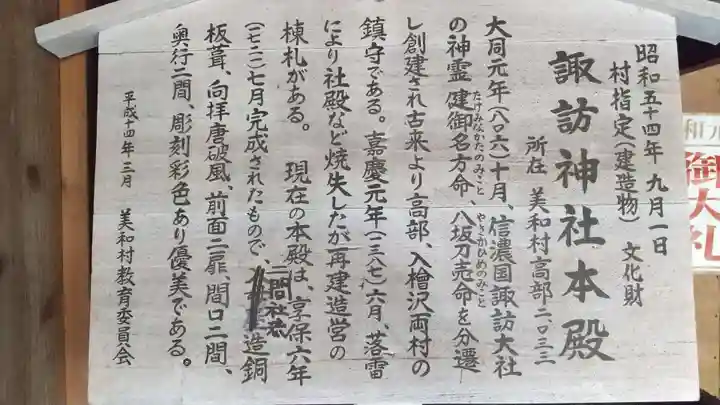 昭和五十四年九月一日
村指定(建造物) 文化財
諏訪神社本殿
所在 美和村高部二〇三三
大同元年(八〇六)十月、信濃国諏訪大社
の神霊健御名方命、八坂刀売命を分遷
たけみなかたのみこと
やさかひめのみこと
し創建され古来より高部、入檜沢両村の
鎮守である。嘉慶元年(一三八七)六月、落雷
により社殿など焼失したが再建造営の
棟札がある。 現在の本殿は、享保六年
(一七二一)七月完成されたもので、二間社流造銅
板葺、向拝唐破風、前面二扉、間口二間、
奥行二間、彫刻彩色あり優美である。
平成十四年三月 美和村教育委員会
御大礼